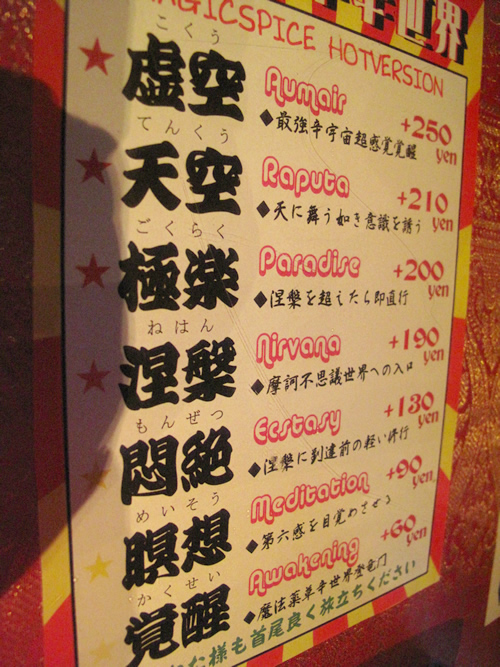 世界
MAGICSPICE HOTVERSION
こくう
虚空 Aumair +250 yen
◆最強辛宇宙超感覚覚醒
てんくう
天空 Raputa +210 yen
◆天に舞う如き意識を誘う
ごくらく
極楽 Paradise +200 yen
◆涅槃を超えたら即直行
ねはん
涅槃 Nirvana +190 yen
◆摩訶不思議世界への入口
もんぜつ
悶絶 Ecstasy +130 yen
◆涅槃に到達前の軽い修行
めいそう
瞑想 Meditation +90 yen
◆第六感を目覚めさせる
かくせい
覚醒 Awakening +60 yen
◆魔法薬単辛世界登竜門
な様も首尾良く旅立ちください